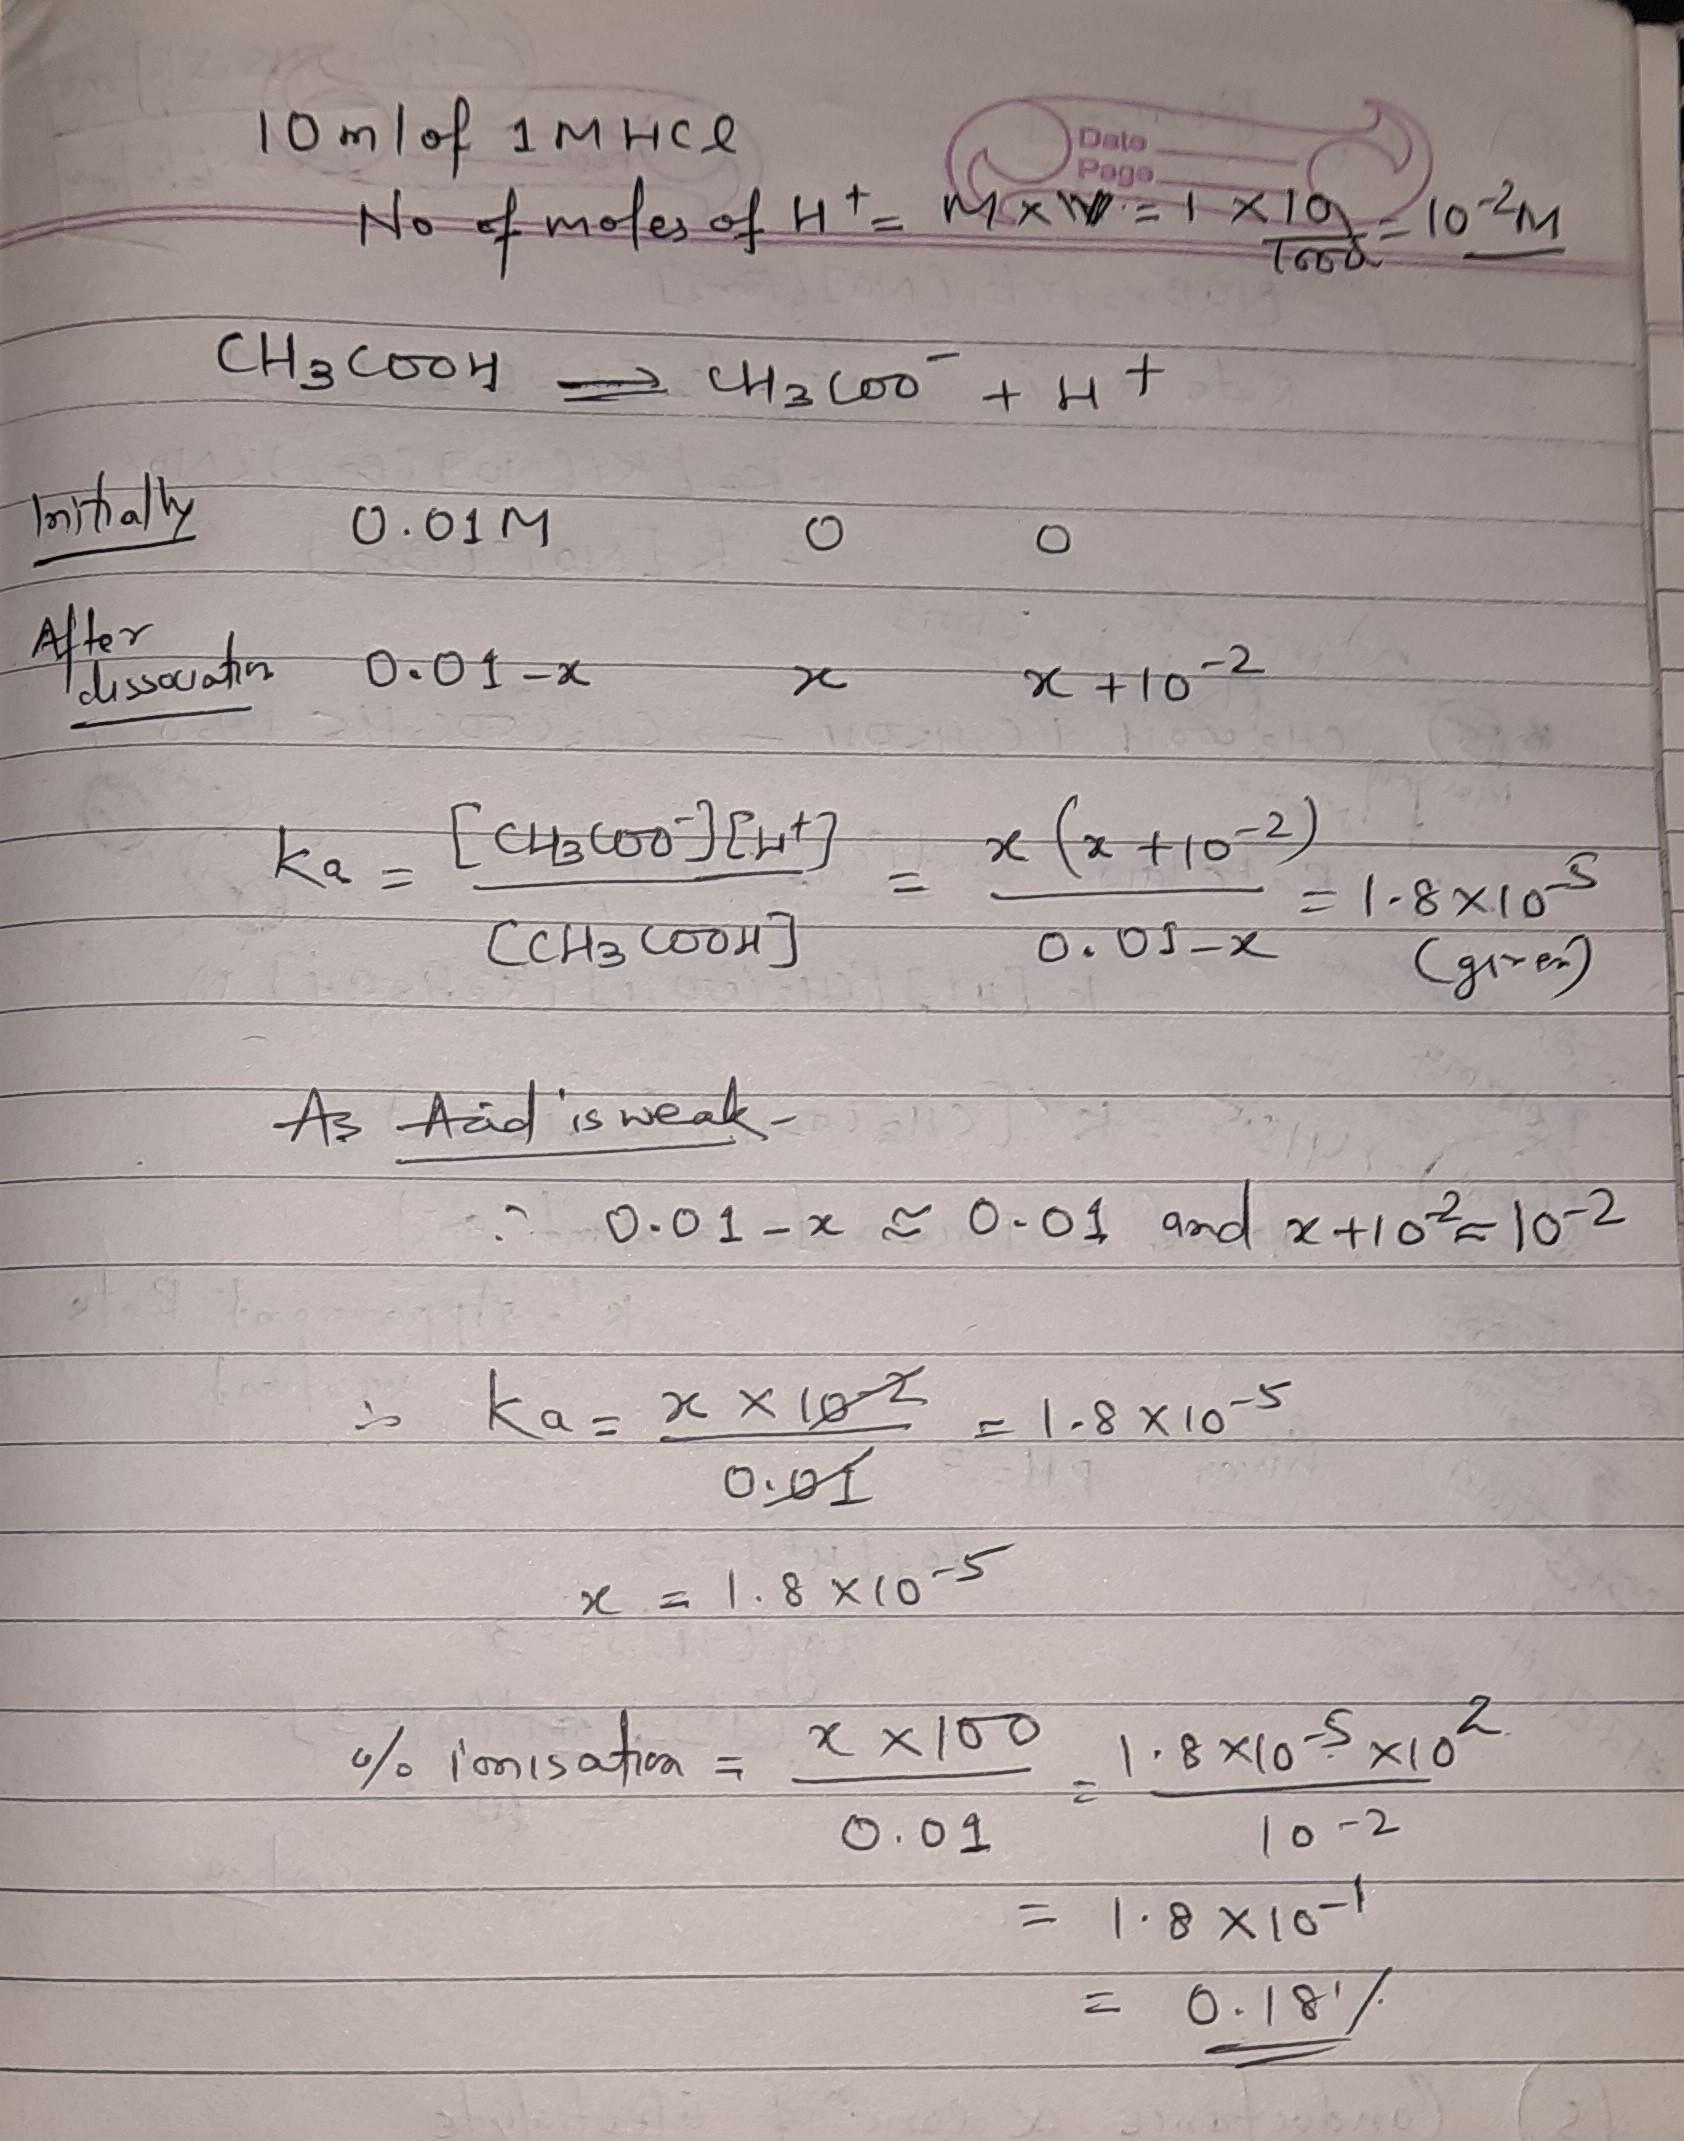 10 ml of 1 M HCl
Date
Page
No of moles of H⁺ = M × V = 1 × 10/1000 = 10⁻² M
CH₃COOH ⇌ CH₃COO⁻ + H⁺
Initially 0.01 M 0 0
After dissociation 0.01 - x x x + 10⁻²
Ka = [CH₃COO⁻][H⁺] / [CH₃COOH] = x (x + 10⁻²) / 0.01 - x = 1.8 × 10⁻⁵ (given)
As Acid is weak -
∴ 0.01 - x ≈ 0.01 and x + 10⁻² ≈ 10⁻²
∴ Ka = x × 10⁻² / 0.01 = 1.8 × 10⁻⁵
x = 1.8 × 10⁻⁵
% ionisation = x × 100 / 0.01 = 1.8 × 10⁻⁵ × 10² / 10⁻²
= 1.8 × 10⁻¹
= 0.18 %